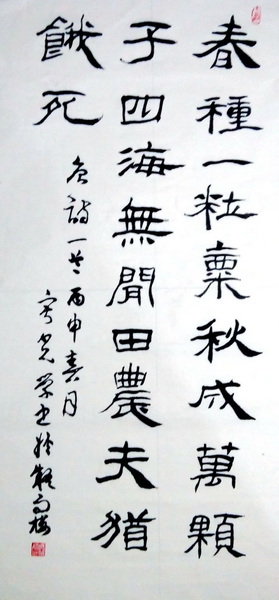 春種一粒粟秋成萬顆
子四海無閒田農夫猶
餓死
唐詩一首丙申春月